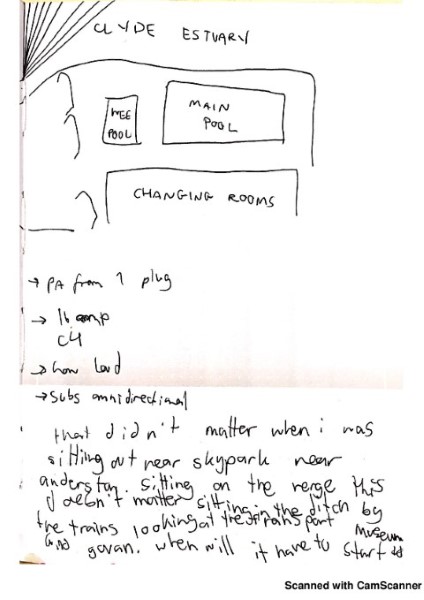 CLYDE ESTUARY
WEE
POOL
MAIN
POOL
CHANGING ROOMS
→ PA from 1 plug
→ 16 amp
C4
→ how loud
→ Subs omnidirectional
that didn't matter when i was
sitting out near skypark near
anderstan. sitting on the verge this
doesn't matter sitting in the ditch by
the trains looking at the transport museum
and govan. when will it have to start
Scanned with CamScanner